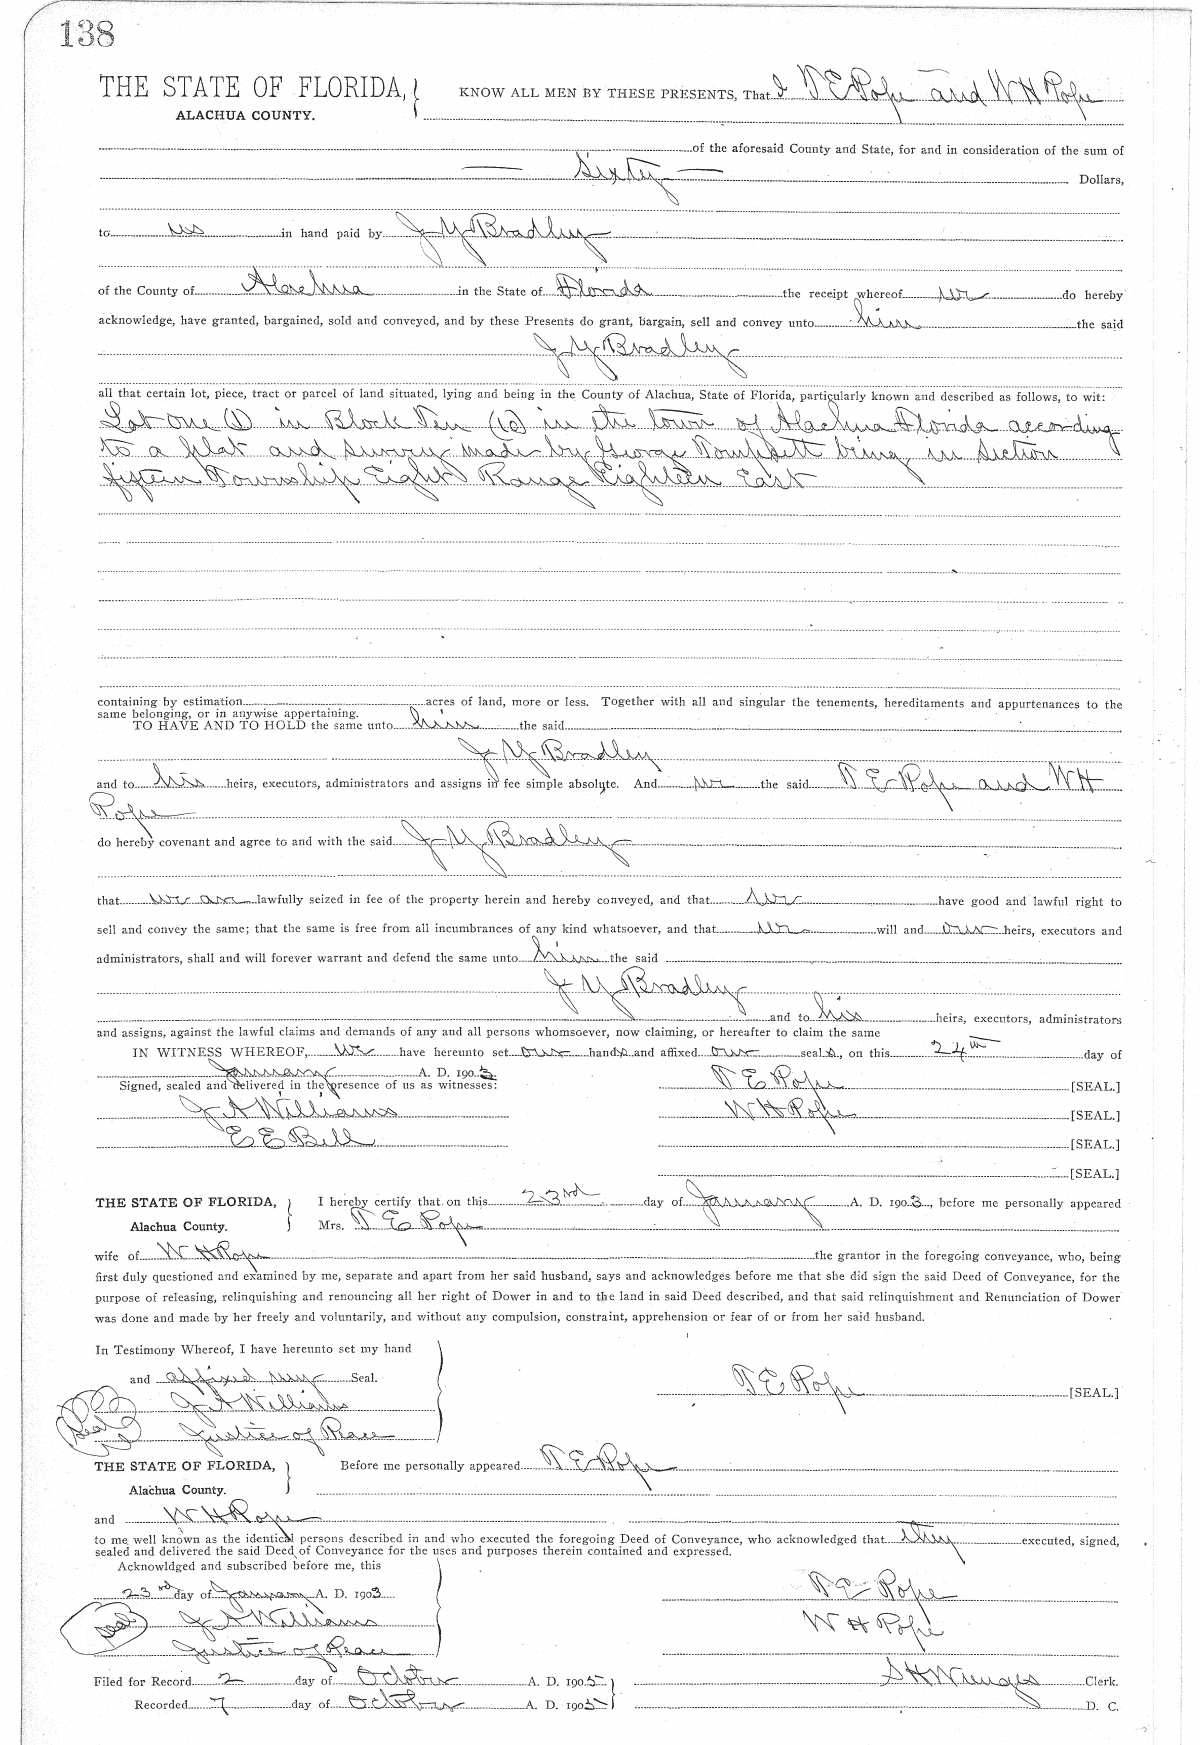 138
THE STATE OF FLORIDA,
ALACHUA COUNTY.
KNOW ALL MEN BY THESE PRESENTS, That I T E Pope and W H Pope
of the aforesaid County and State, for and in consideration of the sum of
Sixty Dollars,
to us in hand paid by J Y Bradley
of the County of Alachua in the State of Florida the receipt whereof we do hereby
acknowledge, have granted, bargained, sold and conveyed, and by these Presents do grant, bargain, sell and convey unto him the said
J Y Bradley
all that certain lot, piece, tract or parcel of land situated, lying and being in the County of Alachua, State of Florida, particularly known and described as follows, to wit:
Lot One (1) in Block Ten (10) in the town of Alachua Florida according
to a plat and survey made by George being in Section
fifteen Township Eight Range Eighteen East
containing by estimation acres of land, more or less. Together with all and singular the tenements, hereditaments and appurtenances to the
same belonging, or in anywise appertaining.
TO HAVE AND TO HOLD the same unto him the said
J Y Bradley
and to his heirs, executors, administrators and assigns in fee simple absolute. And we the said T E Pope and W H
Pope
do hereby covenant and agree to and with the said J Y Bradley
that we are lawfully seized in fee of the property herein and hereby conveyed, and that we have good and lawful right to
sell and convey the same; that the same is free from all incumbrances of any kind whatsoever, and that we will and our heirs, executors and
administrators, shall and will forever warrant and defend the same unto him the said
J Y Bradley
and to his heirs, executors, administrators
and assigns, against the lawful claims and demands of any and all persons whomsoever, now claiming, or hereafter to claim the same
IN WITNESS WHEREOF, we have hereunto set our hands and affixed our seals, on this 24th day of
January A. D. 1903
Signed, sealed and delivered in the presence of us as witnesses:
T E Pope [SEAL.]
J A Williams
W H Pope [SEAL.]
E E Bell
[SEAL.]
[SEAL.]
THE STATE OF FLORIDA,
Alachua County.
I hereby certify that on this 23rd day of January A. D. 1903, before me personally appeared
Mrs. T E Pope
wife of W H Pope the grantor in the foregoing conveyance, who, being
first duly questioned and examined by me, separate and apart from her said husband, says and acknowledges before me that she did sign the said Deed of Conveyance, for the
purpose of releasing, relinquishing and renouncing all her right of Dower in and to the land in said Deed described, and that said relinquishment and Renunciation of Dower
was done and made by her freely and voluntarily, and without any compulsion, constraint, apprehension or fear of or from her said husband.
In Testimony Whereof, I have hereunto set my hand
and affixed my Seal.
T E Pope [SEAL.]
J A Williams
Seal
Justice of Peace
THE STATE OF FLORIDA,
Alachua County.
Before me personally appeared T E Pope
and W H Pope
to me well known as the identical persons described in and who executed the foregoing Deed of Conveyance, who acknowledged that they executed, signed,
sealed and delivered the said Deed of Conveyance for the uses and purposes therein contained and expressed.
Acknowldged and subscribed before me, this
23rd day of January A. D. 1903
T E Pope
Seal
J A Williams
W H Pope
Justice of Peace
Filed for Record 2 day of October A. D. 1905
S H Wienges Clerk.
Recorded 7 day of October A. D. 1905
D. C.